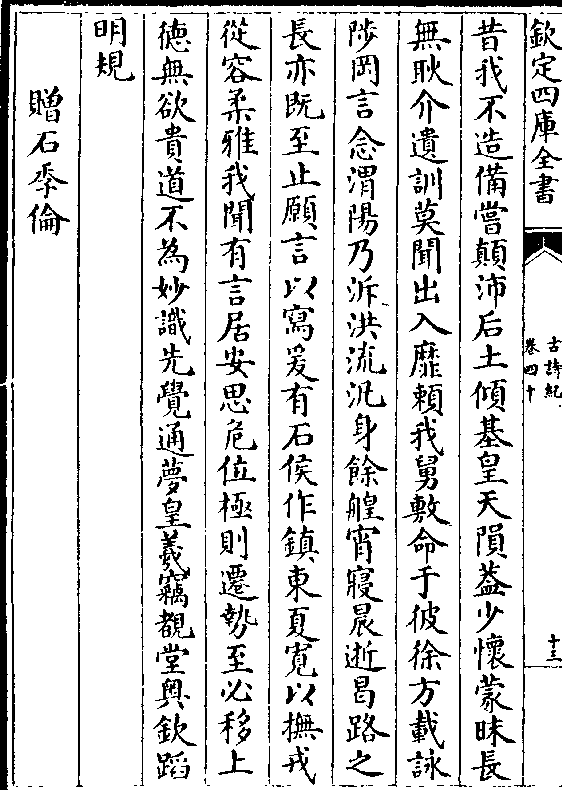 欽定四庫全書
古詩紀
卷四十
十三
昔我不造備嘗顛沛后土傾基皇天隕葢少懷蒙昧長
無耿介遺訓莫聞出入靡賴我舅敷命于彼徐方載詠
陟岡言念渭陽乃泝洪流汎身餘艎宵寢晨逝曷路之
長亦既至止願言以寫爰有石侯作鎮東夏寛以撫戎
從容柔雅我聞有言居安思危位極則遷勢至必移上
徳無欲貴道不為妙識先覺通夢皇羲竊覩堂奥欽蹈
明規
贈石季倫